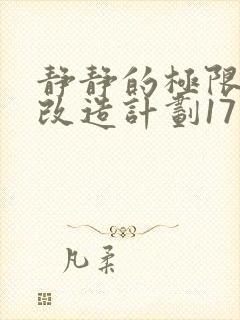 靜靜的極限
改造計劃17
凡柔